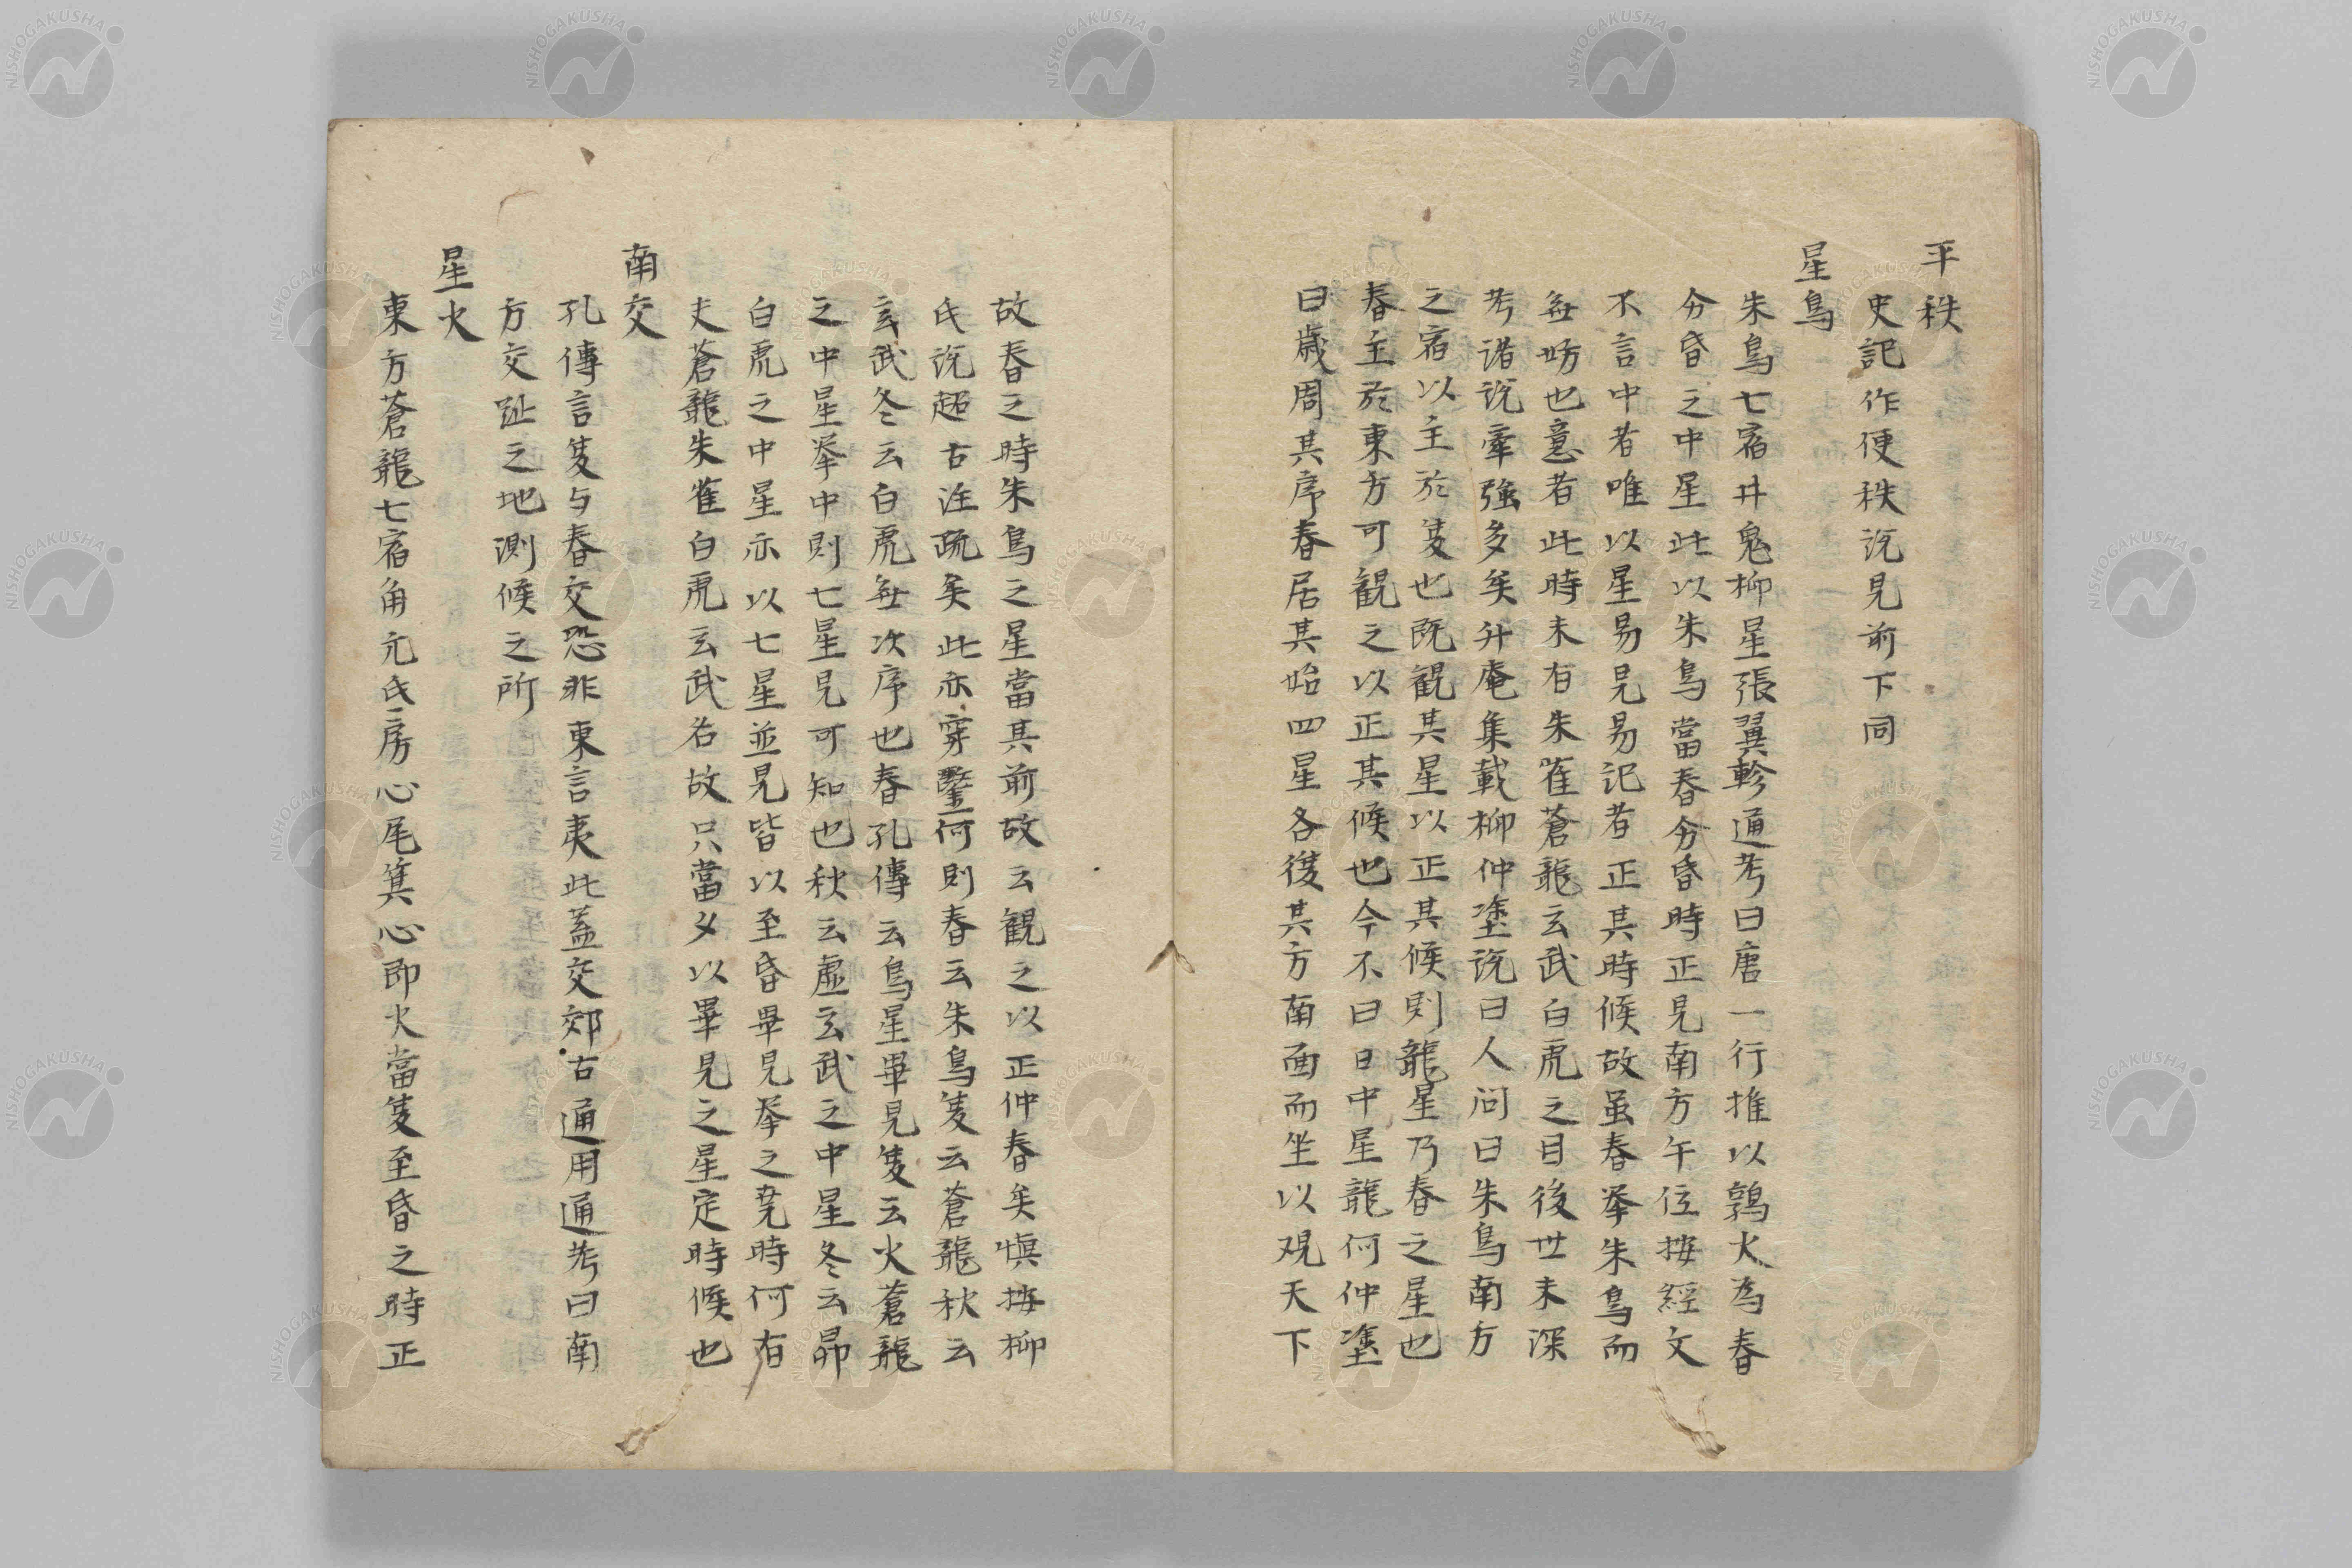 平秩
史記作便秩説見前下同
星鳥
朱鳥七宿井鬼柳星張翼軫通考曰唐一行推以鶉火為春
分昏之中星此以朱鳥當春分昏時正見南方午位按經文
不言中者唯以星易見易記者正其時候故虽春挙朱鳥而
無妨也意者此時未有朱雀蒼龍玄武白虎之目後世未深
考諸説牽強多矣升庵集載柳仲塗説曰人问曰朱鳥南方
之宿以主於夏也既観其星以正其候則龍星乃春之星也
春主於東方可観之以正其候也今不曰日中星龍何仲塗
曰歳周其序春居其始四星各復其方南面而坐以观天下
故春之時朱鳥之星當其前故云観之以正仲春矣愼按柳
氏説超古注疏矣此亦穿鑿何則春云朱鳥夏云蒼龍秋云
玄武冬云白虎無次序也春孔傳云鳥星畢見夏云火蒼龍
之中星挙中則七星見可知也秋云虚玄武之中星冬云昴
白虎之中星亦以七星並見皆以至昏畢見挙之尭時何有
丈蒼龍朱雀白虎玄武名故只當夕以畢見之星定時候也
南交
孔傳言夏与春交恐非東言夷此蓋交郊古通用通考曰南
方交趾之地測候之所
星火
東方蒼龍七宿角亢氐房心尾箕心即火當夏至昏之時正
NISHOGAKUSHA